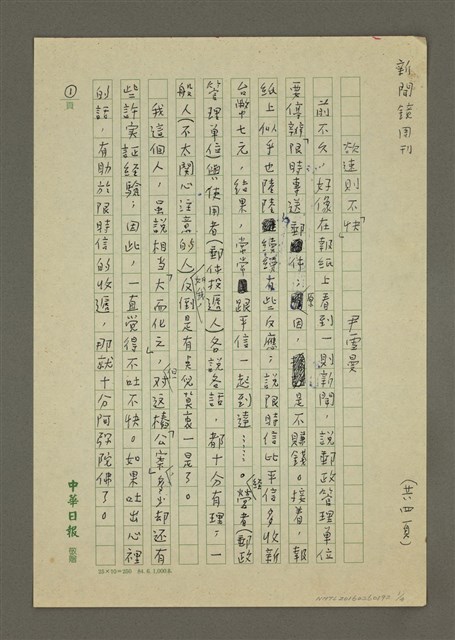 新聞鏡周刊
(共四頁)
「欲速則不快」
尹雪曼
前不久，好像在報紙上看到一則新聞，說郵政管理單位
要停辦「限時專送」郵件；原因，是不賺錢。接着，報
紙上似乎也陸陸續續有些反應；說限時信比平信多收新
台幣七元，結果，常常跟平信一起到達……。經營者(郵政
管理單位)與使用者(郵件投遞人)各說各話，都十分有理；一
般人(不太關心注意的人)反倒是有点兒莫衷一是了。
我這個人，虽說相当「大而化之」，但对这樁「公案」多少却还有
些許实証经驗；因此，一直覚得不吐不快。如果吐出心裡
的話，有助於限時信的收遞，那就十分阿弥陀佛了。
①頁
中華日報
稿牋
25×10=250 84.6.1,000本
1/4